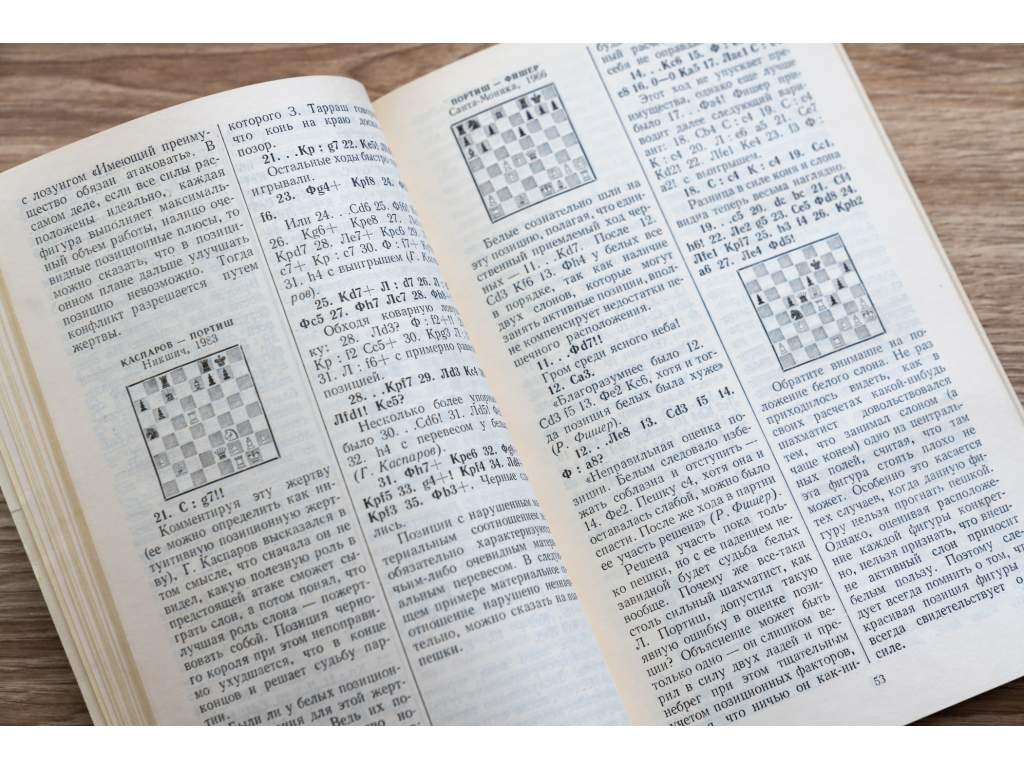 с лозунгом «Имеющий преиму-
щество обязан атаковать». В
самом деле, если все силы рас-
положены идеально, каждая
фигура выполняет максималь-
ный объем работы, налицо оче-
видные позиционные плюсы, то
можно сказать, что в позици-
онном плане дальше улучшать
позицию невозможно. Тогда
конфликт разрешается путем
жертвы.
КАСПАРОВ — ПОРТИШ
Никшич, 1983
21. С : g7!!
Комментируя эту жертву
(ее можно определить как ин-
туитивную позиционную жерт-
ву), Г. Каспаров высказался в
том смысле, что сначала он не
видел, какую полезную роль в
предстоящей атаке сможет сы-
грать слон, а потом понял, что
лучшая роль слона — пожерт-
вовать собой. Позиция черно-
го короля при этом непоправи-
мо ухудшается, что в конце
концов и решает судьбу пар-
тии.
Были ли у белых позицион-
для этой жерт-
Ведь их по-
которого З. Тарраш
что конь на краю
позор.
21. . .Кр : g7 22.
Остальные ходы быстро
игрывали.
23. Фg4+ Крf8 24.
f6.
Или 24. . .Cd6 25.
26. Кg6+ Кре8 27.
Kpd7 28. Ле7+ Крс6 29.
с7+ Кр : с7 30. Ф : f7+
31. h4 с выигрышем (Г. Кас-
ров).
25. Kd7+ Л : d7 26.
Фс5 27. Фh7 Лс7 28.
Обходя коварную
ку: 28. Лd3? Ф : f2+!!
Кр : f2 Cc5+ 30. Kpg3
31. Л : f6+ с примерно
позицией.
28. . .Kpf7 29. Лd3
Лfd1! Ke5?
Несколько более упор
было 30. . .Cd6! 31. Лd5!
32. h4 с перевесом у бе
(Г. Каспаров).
31. Фh7+ Кре6 32.
Kpf5 33. g4+! Kpf4 34.
Kpf3 35. Фb3+. Черные
лись.
Позиции с нарушенным
териальным соотношением
обязательно характеризуют
чьим-либо очевидным мате
альным перевесом. В следу
щем примере материальное
отношение нарушено
тельно, можно сказать на
пешки.
ПОРТИШ — ФИШЕР
Санта-Моника, 1966
Белые сознательно шли на
эту позицию, полагая, что един-
ственный приемлемый ход чер-
ных — 11. . .Kd7. После 12.
Cd3 Kf6 13. Фh4 у белых все
в порядке, так как наличие
двух слонов, которые могут
занять активные позиции, впол-
не компенсирует недостатки пе-
шечного расположения.
11. . .Фd7!!
Гром среди ясного неба!
12. Са3.
«Благоразумнее было 12.
Cd3 f5 13. Фе2 Кс6, хотя и тог-
да позиция белых была хуже»
(Р. Фишер).
12. . .Ле8 13. Cd3 f5 14.
Ф : а8?
«Неправильная оценка по-
зиции. Белым следовало избе-
жать соблазна и отступить —
14. Фе2. Пешку с4, хотя она и
оставалась слабой, можно было
спасти. После же хода в партии
ее участь решена» (Р. Фишер).
Решена участь пока толь-
ко пешки, но с ее падением не-
завидной будет судьба белых
вообще. Почему же все-таки
столь сильный шахматист, как
Л. Портиш, допустил такую
явную ошибку в оценке пози-
ции? Объяснение может быть
только одно — он слишком ве-
рил в силу двух ладей и пре-
небрег при этом тщательным
учетом позиционных факторов,
что ничью он как-ни-
себя не
14. . .Кс6 15.
е8 16. 0—0 Ка5 17. Лае1 С : с4
Этот ход не упускает пре-
имущества, однако еще лучше
было 17. . .Фа4! Фишер при-
водит далее следующий вари-
ант: 18. Сb4 С : с4 19. С : с4
К : с4 20. Л : е6 а5 21. Се7
Kd2! 22. Лfe1 Ке4 23. f3 Ф :
а2! с выигрышем.
18. С : с4 К : с4 19. Сс1.
Разница в силе коня и слона
видна теперь весьма наглядно.
19. . .с5 20. dc bc 21. Сf4
h6! 22. Ле2 g5 23. Се5 Фd8 24.
Лfe1 Kpf7 25. h3 f4 26. Kph2
а6 27. Ле4 Фd5!
Обратите внимание на по-
ложение белого слона. Не раз
приходилось видеть, как в
своих расчетах какой-нибудь
шахматист довольствовался
тем, что занимал слоном (а
чаще конем) одно из централь-
ных полей, считая, что там
эта фигура стоять плохо не
может. Особенно это касается
тех случаев, когда данную фи-
гуру нельзя прогнать пешкой.
Однако, оценивая расположе-
ние каждой фигуры конкрет-
но, нельзя признать, что внеш-
не активный слон приносит
белым пользу. Поэтому сле-
дует всегда помнить о том, что
красивая позиция фигуры не
всегда свидетельствует о
силе.
53